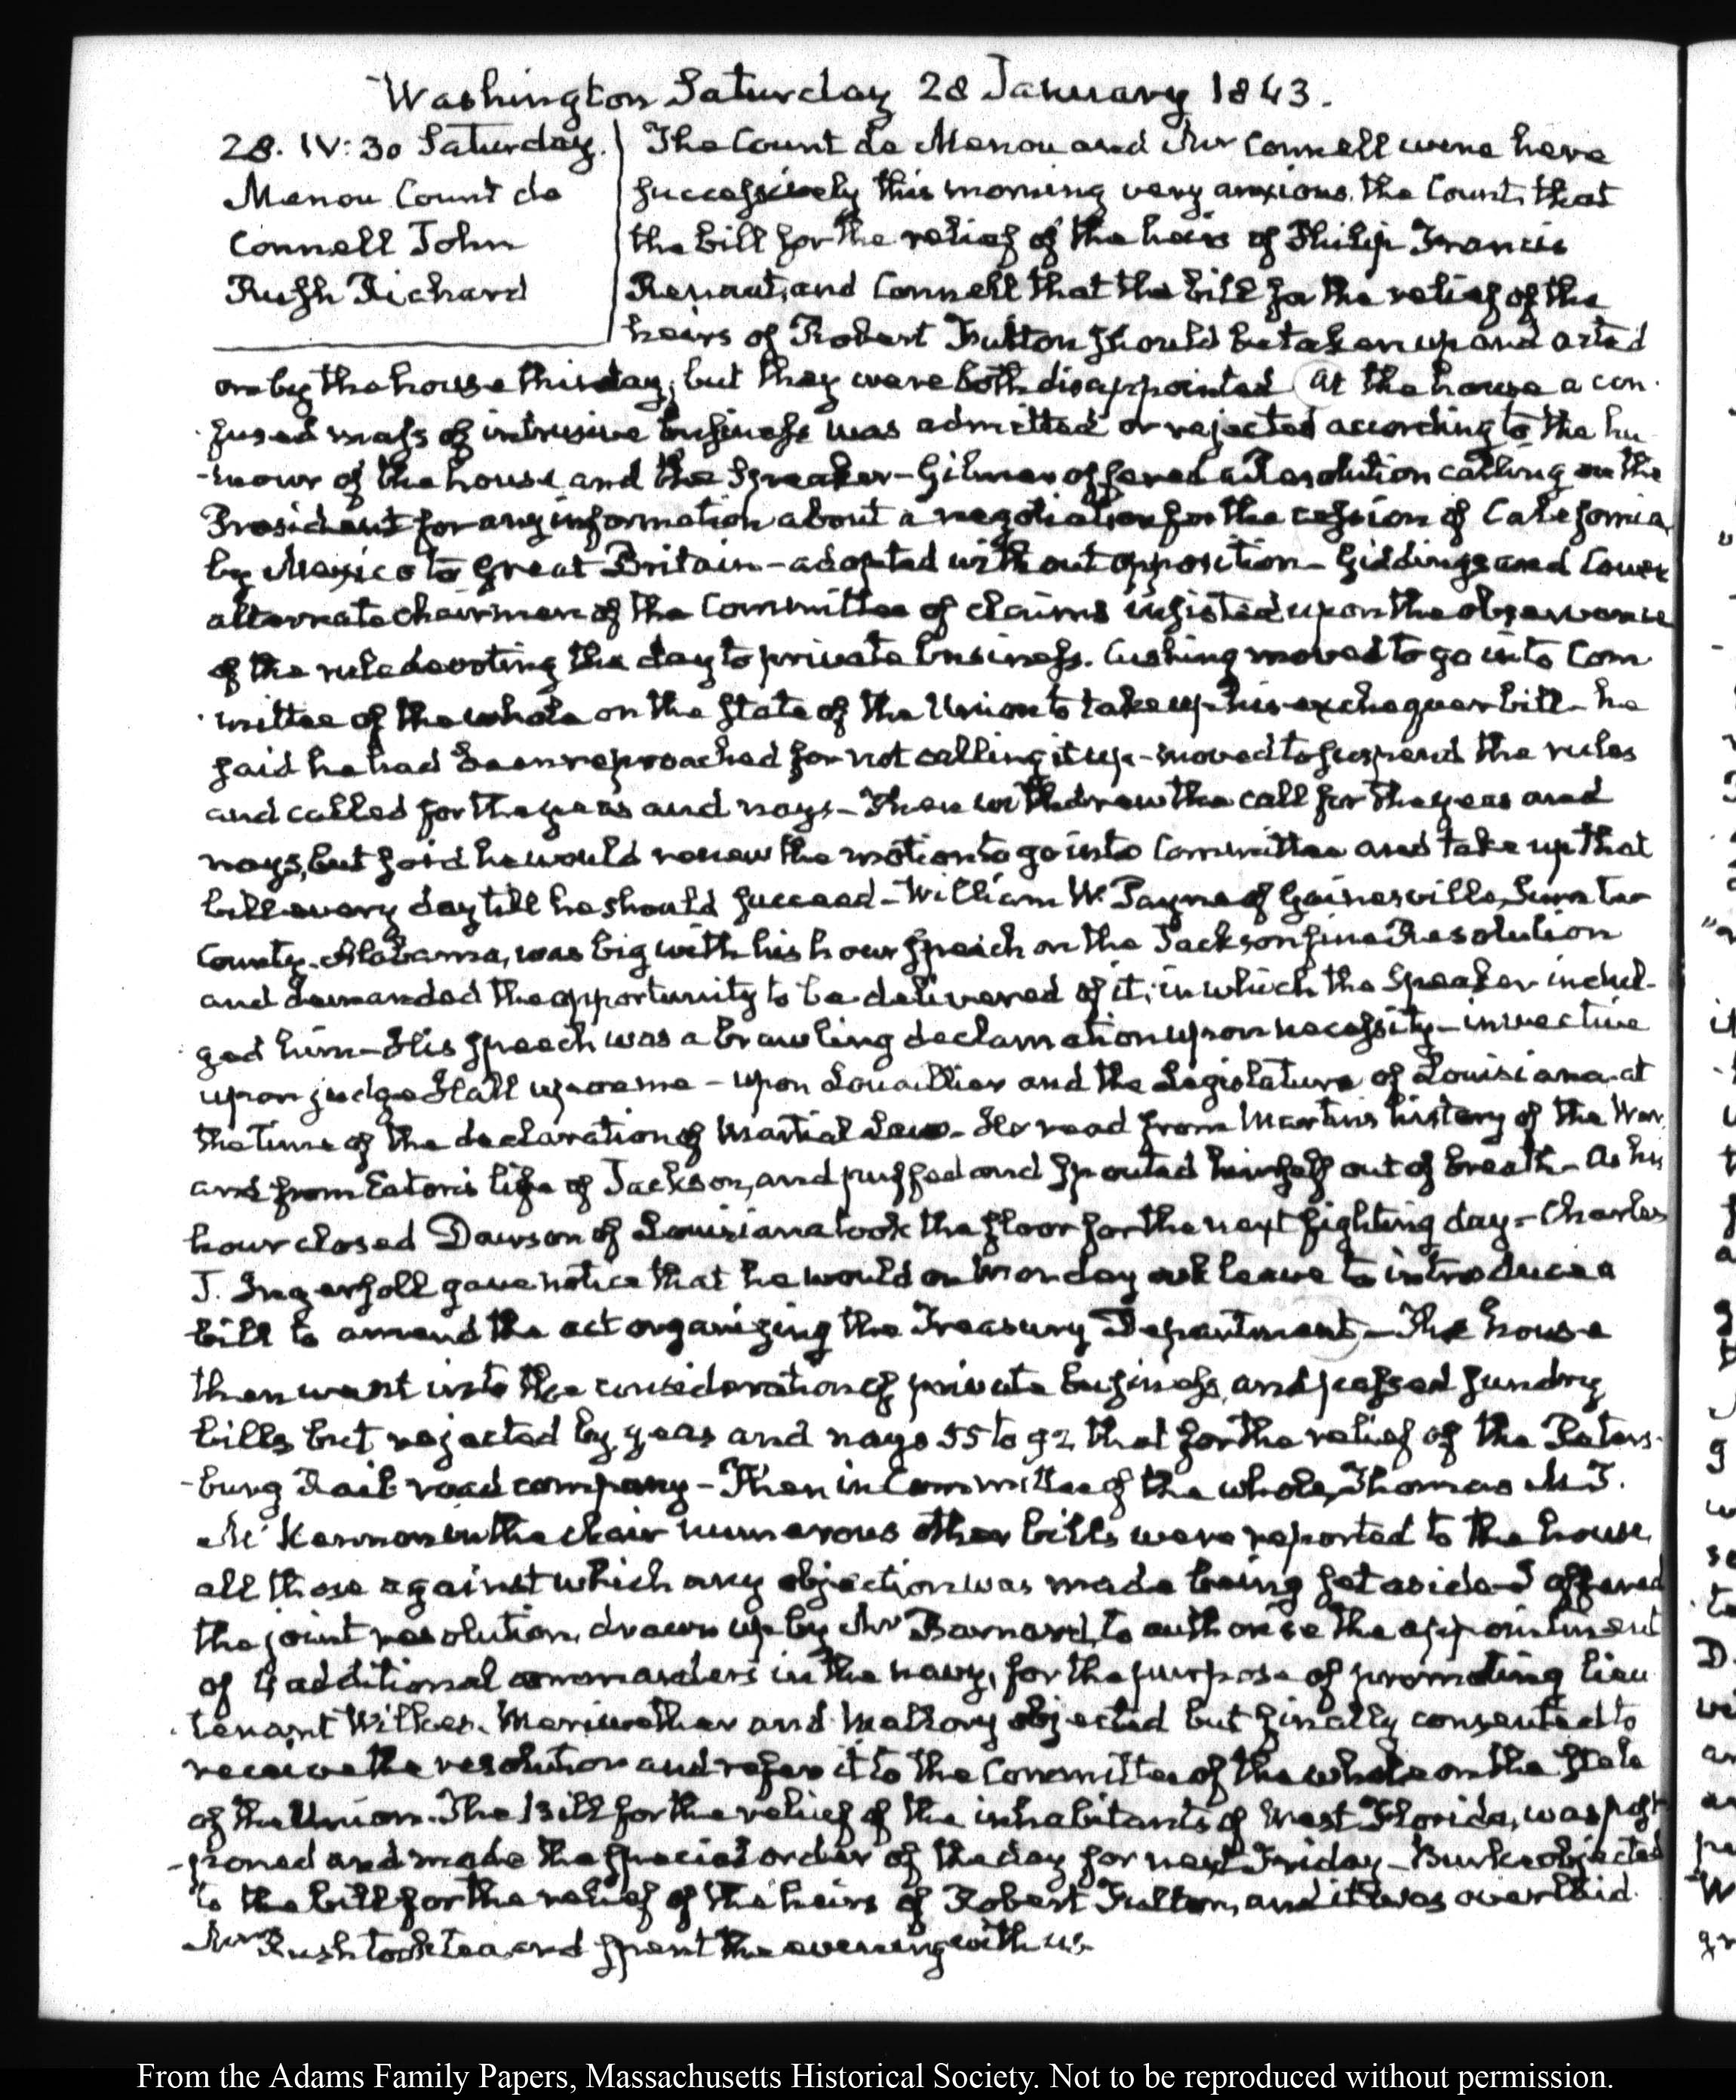 Washington Saturday 28 January 1843.
28. IV:30 Saturday.
Menou Count de
Connell John
Rush Richard
The Count de Menou and Mr Connell were here
successively this morning very anxious, the Count, that
the bill for the relief of the heirs of Philip Francis
Renaut, and Connell that the bill for the relief of the
heirs of Robert Fulton should be taken up and acted
on by the house this day; but they were both disappointed At the house a con-
fused mass of intrusive business was admitted or rejected according to the hu-
-mour of the house and the Speaker- Gilmer offered a Resolution calling on the
President for any information about a negotiation for the cession of California
by Mexico to Great Britain- adopted without opposition- Giddings and Cowen
alternate chairmen of the Committee of claims insisted upon the observance
of the rule devoting the day to private business. Cushing moved to go into Com-
mittee of the whole on the State of the Union to take up his exchequer bill- he
said he had been reproached for not calling it up- moved to suspend the rules
and called for the yeas and nays- Then withdrew the call for the yeas and
nays, but said he would renew the motion to go into Committee and take up that
bill every day till he should succeed- William W. Payne of Gainesville, Sumter
County. Alabama, was big with his hour speech on the Jackson fine Resolution
and demanded the opportunity to be delivered of it; in which the Speaker indul-
ged him- His speech was a brawling declamation upon necessity- invective
upon judge Hall upon me- upon Louaillier and the Legislature of Louisiana at
the time of the declaration of Martial Law- He read from Martin's history of the War,
and from Eaton's life of Jackson, and puffed and spouted himself out of breath- As his
hour closed Dawson of Louisiana took the floor for the next fighting day- Charles
J. Ingersoll gave notice that he would on Monday ask leave to introduce a
bill to amend the act organizing the Treasury Department- The house
then went into the consideration of private business, and passed sundry
bills, but rejected by yeas and nays 55 to 92 that for the relief of the Peters-
-burg Rail road company- Then in Committee of the whole, Thomas M T.
McKennon in the chair numerous other bills were reported to the house,
all those against which any objection was made being set aside- I offered
the joint resolution, drawn up by Mr Barnard, to authorise the appointment
of 4 additional commanders in the navy, for the purpose of promoting lieu-
tenant Wilkes. Meriwether and Mallory objected but finally consented to
receive the resolution and refer it to the Committee of the whole on the State
of the Union. The Bill for the relief of the inhabitants of West Florida, was post-
-poned and made the special order of the day for next Friday- Burke objected
to the bill for the relief of the heirs of Robert Fulton, and it was overlaid.
Mr Rush took tea, and spent the evening with us.
From the Adams Family Papers, Massachusetts Historical Society. Not to be reproduced without permission.